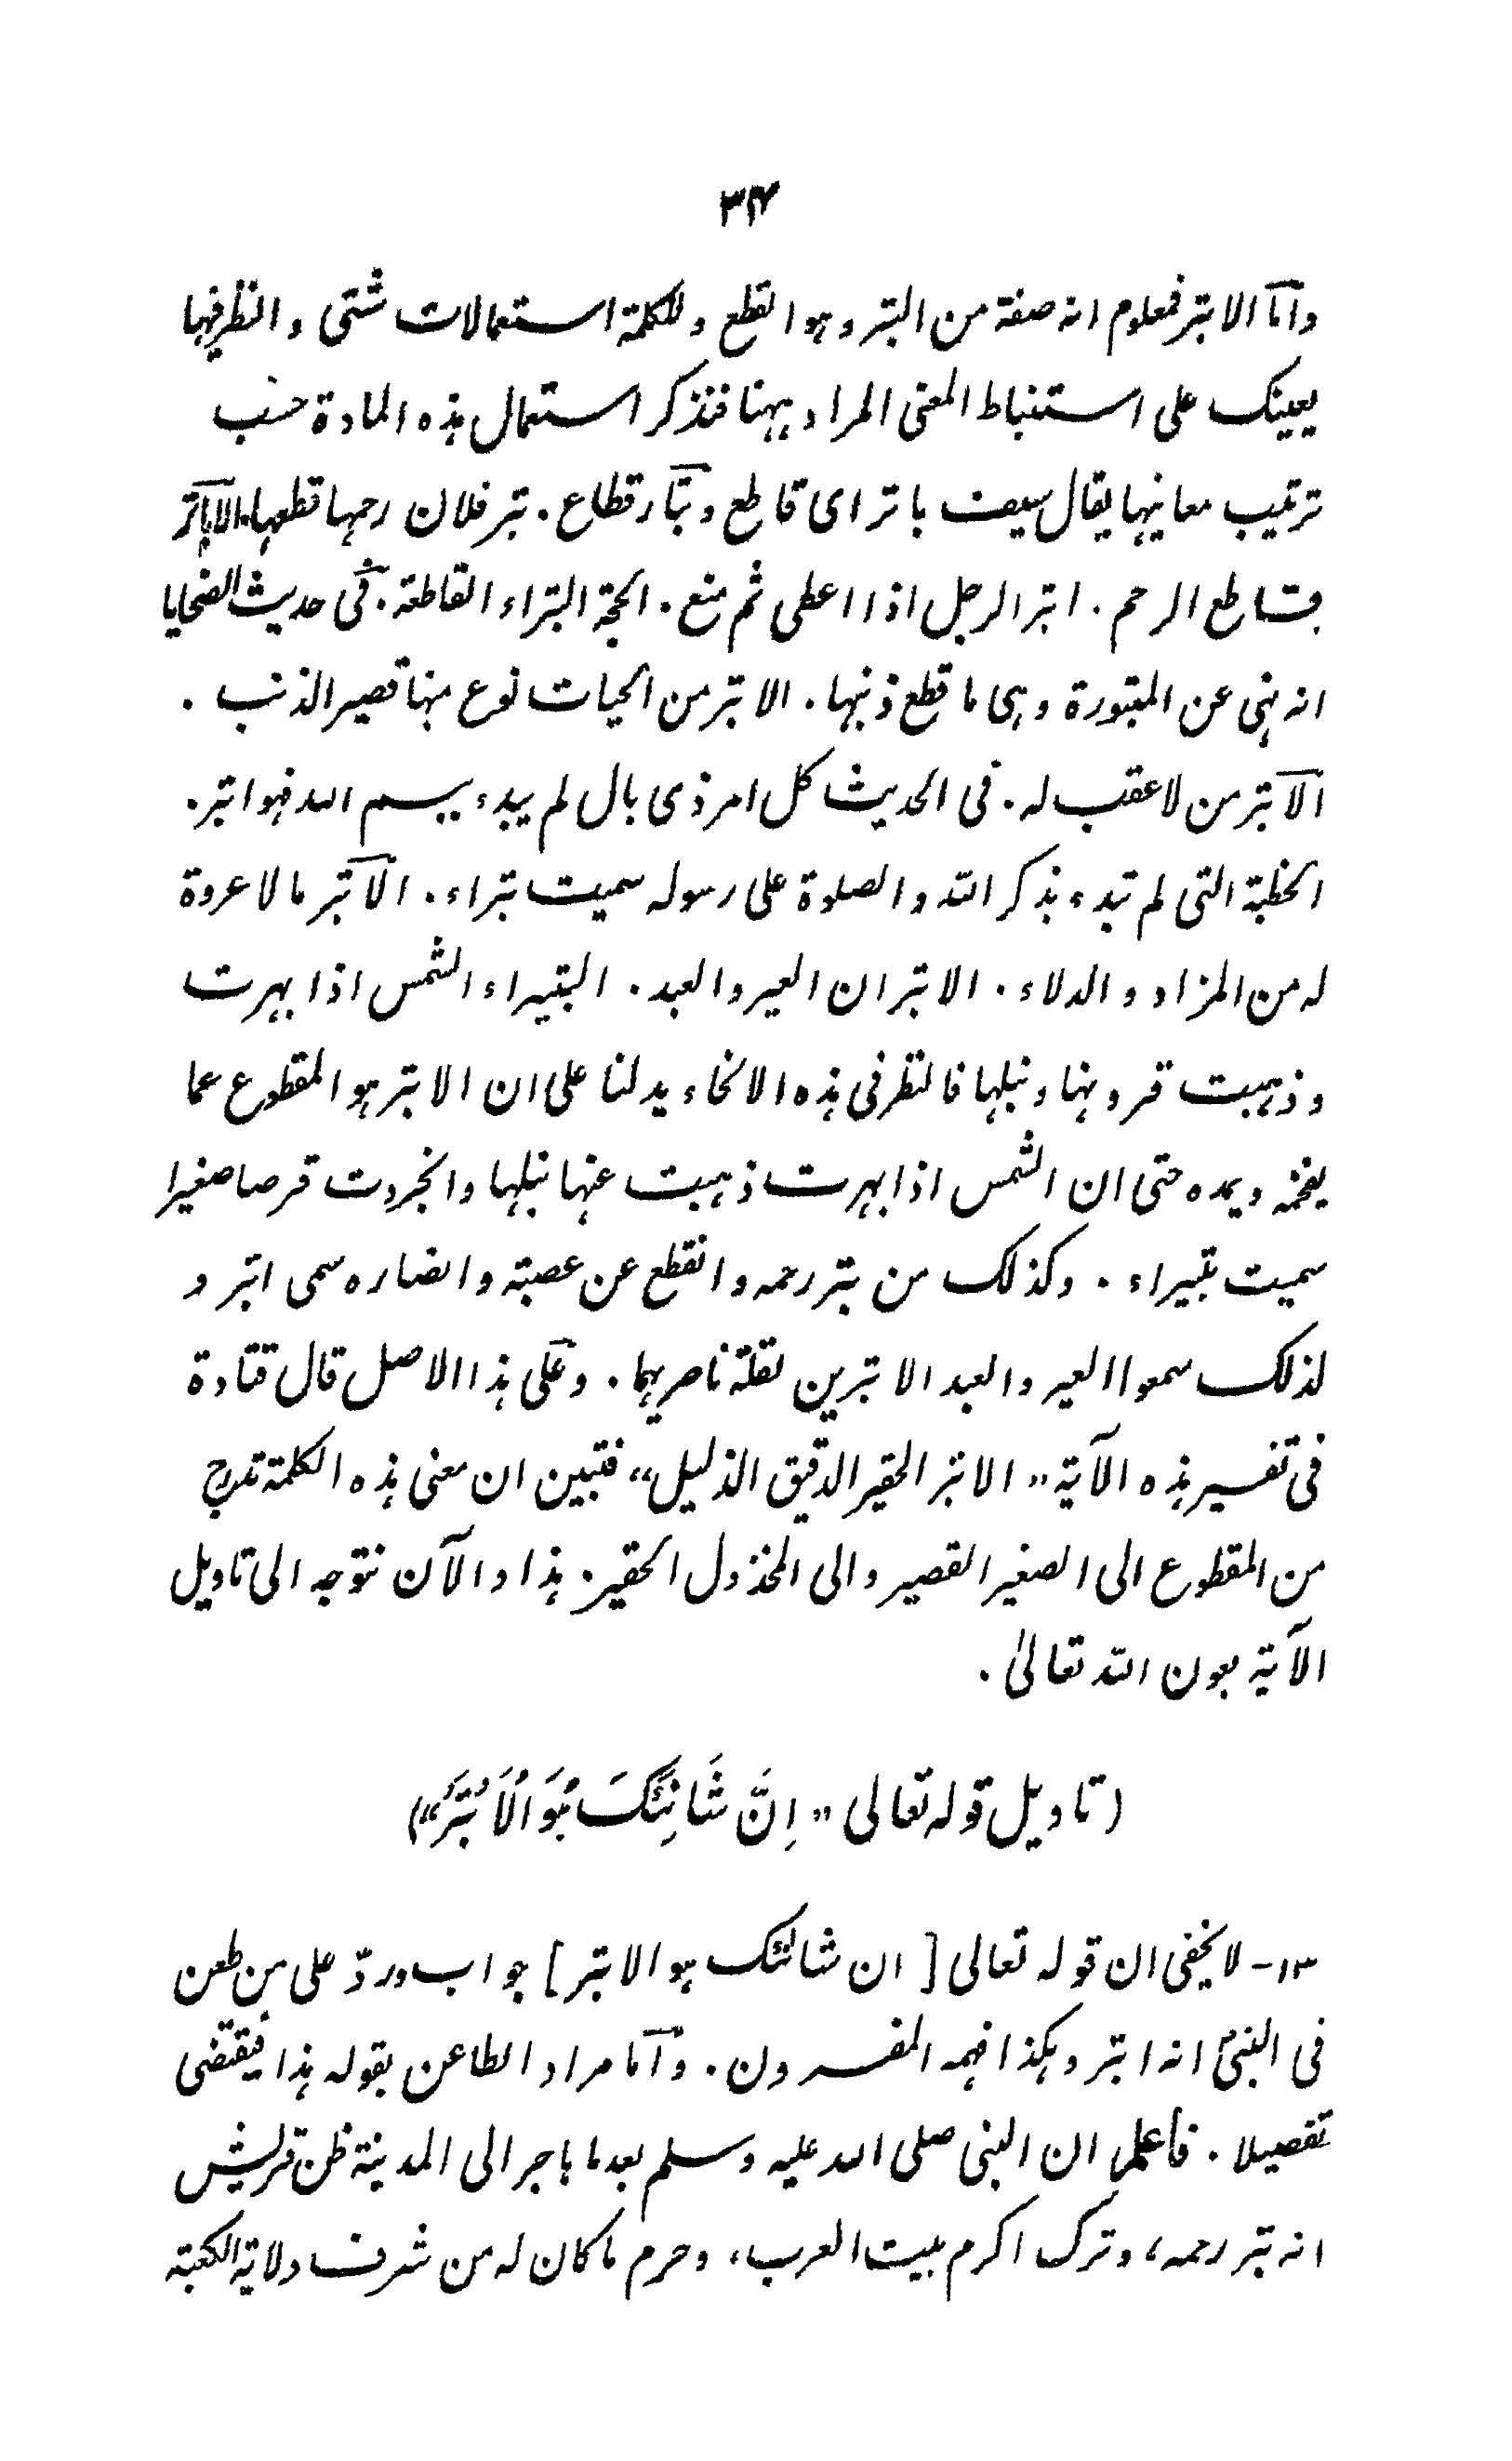 ۳۴
وامّا الابتر فمعلوم انه صفة من البتر وهو القطع وللكلمة استعمالات شتى والنظر فيها
يعينك على استنباط المعنى المراد ههنا فنذكر استعمال هذه المادة حسب
ترتيب معانيها يقال سيف باتر اى قاطع وبتّار قطاع. بتر فلان رحمها قطعها. الاباتر
قاطع الرحم. ابتر الرجل اذا اعطى ثم منع. الحجة البتراء القاطعة. فى حديث الضحايا
انه نهى عن المبتورة وهى ما قطع ذنبها. الابتر من الحيات نوع منها قصير الذنب.
الابتر من لا عقب له. فى الحديث كل امر ذى بال لم يبدء ببسم الله فهو ابتر.
الخطبة التى لم تبدء بذكر الله والصلوة على رسوله سميت بتراء. الابتر ما لا عروة
له من المزاد والدلاء. الابتران العير والعبد. البتيراء الشمس اذا بهرت
وذهبت قرونها ونبلها فالنظر فى هذه الانحاء يدلنا على ان الابتر هو المقطوع عما
يفخمه ويمده حتى ان الشمس اذا بهرت ذهبت عنها نبلها وانجردت قرصا صغيرا
سميت بتيراء. وكذلك من بتر رحمه وانقطع عن عصبته وانصاره سمى ابتر و
لذلك سموا العير والعبد الابترين لقلة ناصريهما. وعلى هذا الاصل قال قتادة
فى تفسير هذه الآية "الابتر الحقير الدقيق الذليل" فتبين ان معنى هذه الكلمة تدرج
من المقطوع الى الصغير القصير والى المخذول الحقير. هذا والآن نتوجه الى تاويل
الآية بعون الله تعالىٰ.
(تاويل قوله تعالى "اِنَّ شَانِئَكَ هُوَ الْاَبْتَرُ")
۱۳- لا يخفى ان قوله تعالى [ان شانئك هو الابتر] جواب وردّ على من طعن
فى النبىؐ انه ابتر وهكذا فهمه المفسرون. وامّا مراد الطاعن بقوله هذا فيقتضى
تفصيلا. فاعلم ان النبى صلى الله عليه وسلم بعد ما هاجر الى المدينة ظن قريش
انه بتر رحمه، وترك اكرم بيت العرب، وحرم ما كان له من شرف ولاية الكعبة